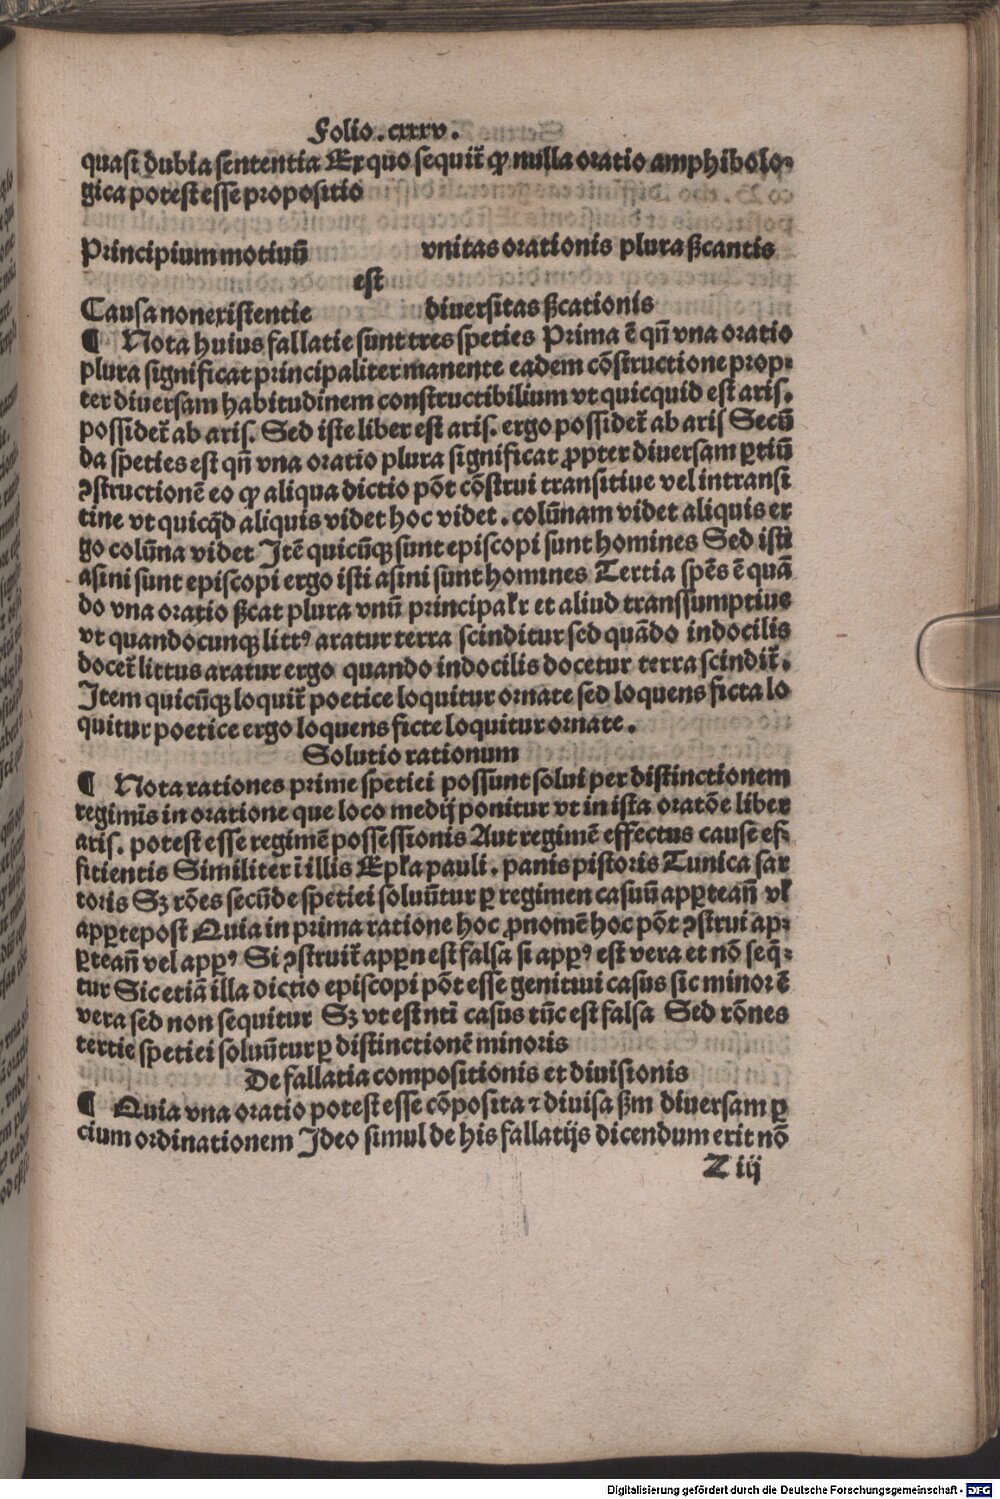 Folio. cxxxv.
quasi dubia sententia Ex quo sequit̄ ꝙ nulla oratio amphibolo⸗
gica potest esse propositio
Principium motiuū vnitas orationis plura ßcantis
est
Causa non existentie diuersitas ßcationis
¶ Nota huius fallatie sunt tres speties Prima ē qn̄ vna oratio
plura significat principaliter manente eadem cōstructione prop⸗
ter diuersam habitudinem constructibilium vt quicquid est aris.
possidet̄ ab aris. Sed iste liber est aris. ergo possidet̄ ab aris Secū
da speties est qn̄ vna oratio plura significat ꝓpter diuersam ꝑtiū
ꝯstructionē eo ꝙ aliqua dictio pōt cōstrui transitiue vel intransi
tine vt quicq̄d aliquis videt hoc videt. colūnam videt aliquis er
go colūna videt Itē quicūqꝫ sunt episcopi sunt homines Sed isti
asini sunt episcopi ergo isti asini sunt homines Tertia spēs ē quā
do vna oratio ßcat plura vnū principalr et aliud transsumptiue
vt quandocunqꝫ littꝰ aratur terra scinditur sed quādo indocilis
docet̄ littus aratur ergo quando indocilis docetur terra scindit̄.
Item quicūqꝫ loquit̄ poetice loquitur ornate sed loquens ficta lo
quitur poetice ergo loquens ficte loquitur ornate.
Solutio rationum
¶ Nota rationes prime spetiei possunt solui per distinctionem
regimīs in oratione que loco medij ponitur vt in ista oratōe liber
aris. potest esse regimē possessionis Aut regimē effectus cause ef⸗
fitientis Similiter ī illis Epła pauli. panis pistoris Tunica sar
toris Sꝫ rōes secūde spetiei soluūtur ꝑ regimen casuū appꝑtean̄ vł
appꝑtepost Quia in prima ratione hoc ꝓnomē hoc pōt ꝯstrui ap⸗
ꝑtean̄ vel appꝑꝰ Si ꝯstruit̄ appꝑn est falsa si appꝑꝰ est vera et nō seq̄⸗
tur Sic etiā illa dictio episcopi pōt esse genitiui casus sic minor ē
vera sed non sequitur Sꝫ vt est nti casus tūc est falsa Sed rōnes
tertie spetiei soluūtur ꝑ distinctionē minoris
De fallatia compositionis et diuisionis
¶ Quia vna oratio potest esse cōposita ⁊ diuisa ßm diuersam ꝑ
cium ordinationem Ideo simul de his fallatijs dicendum erit nō
Z iij
Digitalisierung gefördert durch die Deutsche Forschungsgemeinschaft - DFG